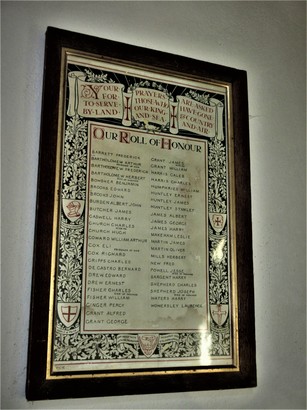 YOUR PRAYERS ARE ASKED
FOR THOSE WHO HAVE GONE
TO SERVE OUR KING & COUNTRY
BY LAND AND SEA AND AIR
OUR ROLL OF HONOUR
BARNETT FREDERICK
BARTHOLOMEW ARTHUR
BARTHOLOMEW FREDERICK
BARTHOLOMEW HERBERT
BENJAMIN
BROOKS EDWARD
JOHN
BURDEN ALBERT JOHN
BUTCHER JAMES
CASWELL HARRY
CHURCH CHARLES
CHURCH HUGH
COWARD WILLIAM ARTHUR
COX ELI
COX RICHARD
CRIPPS CHARLES
DE CASTRO BERNARD
DREW EDWARD
DREW ERNEST
FISHER CHARLES
FISHER WILLIAM
GINGER PERCY
GRANT ALFRED
GRANT GEORGE
GRANT JAMES
GRANT WILLIAM
HARRIS CALEB
HARRIS CHARLES
HUMPHRIES WILLIAM
HUNTLEY ERNEST
HUNTLEY JAMES
HUNTLEY STANLEY
JAMES ALBERT
JAMES GEORGE
JAMES HARRY
LESLIE
MARTIN JAMES
MARTIN OLIVER
MILLS HERBERT
NEW FRED
POWELL JESSE
SARGENT HARRY
SHEPHERD CHARLES
SHEPHERD JOSEPH
WATERS HARRY
LAURENCE